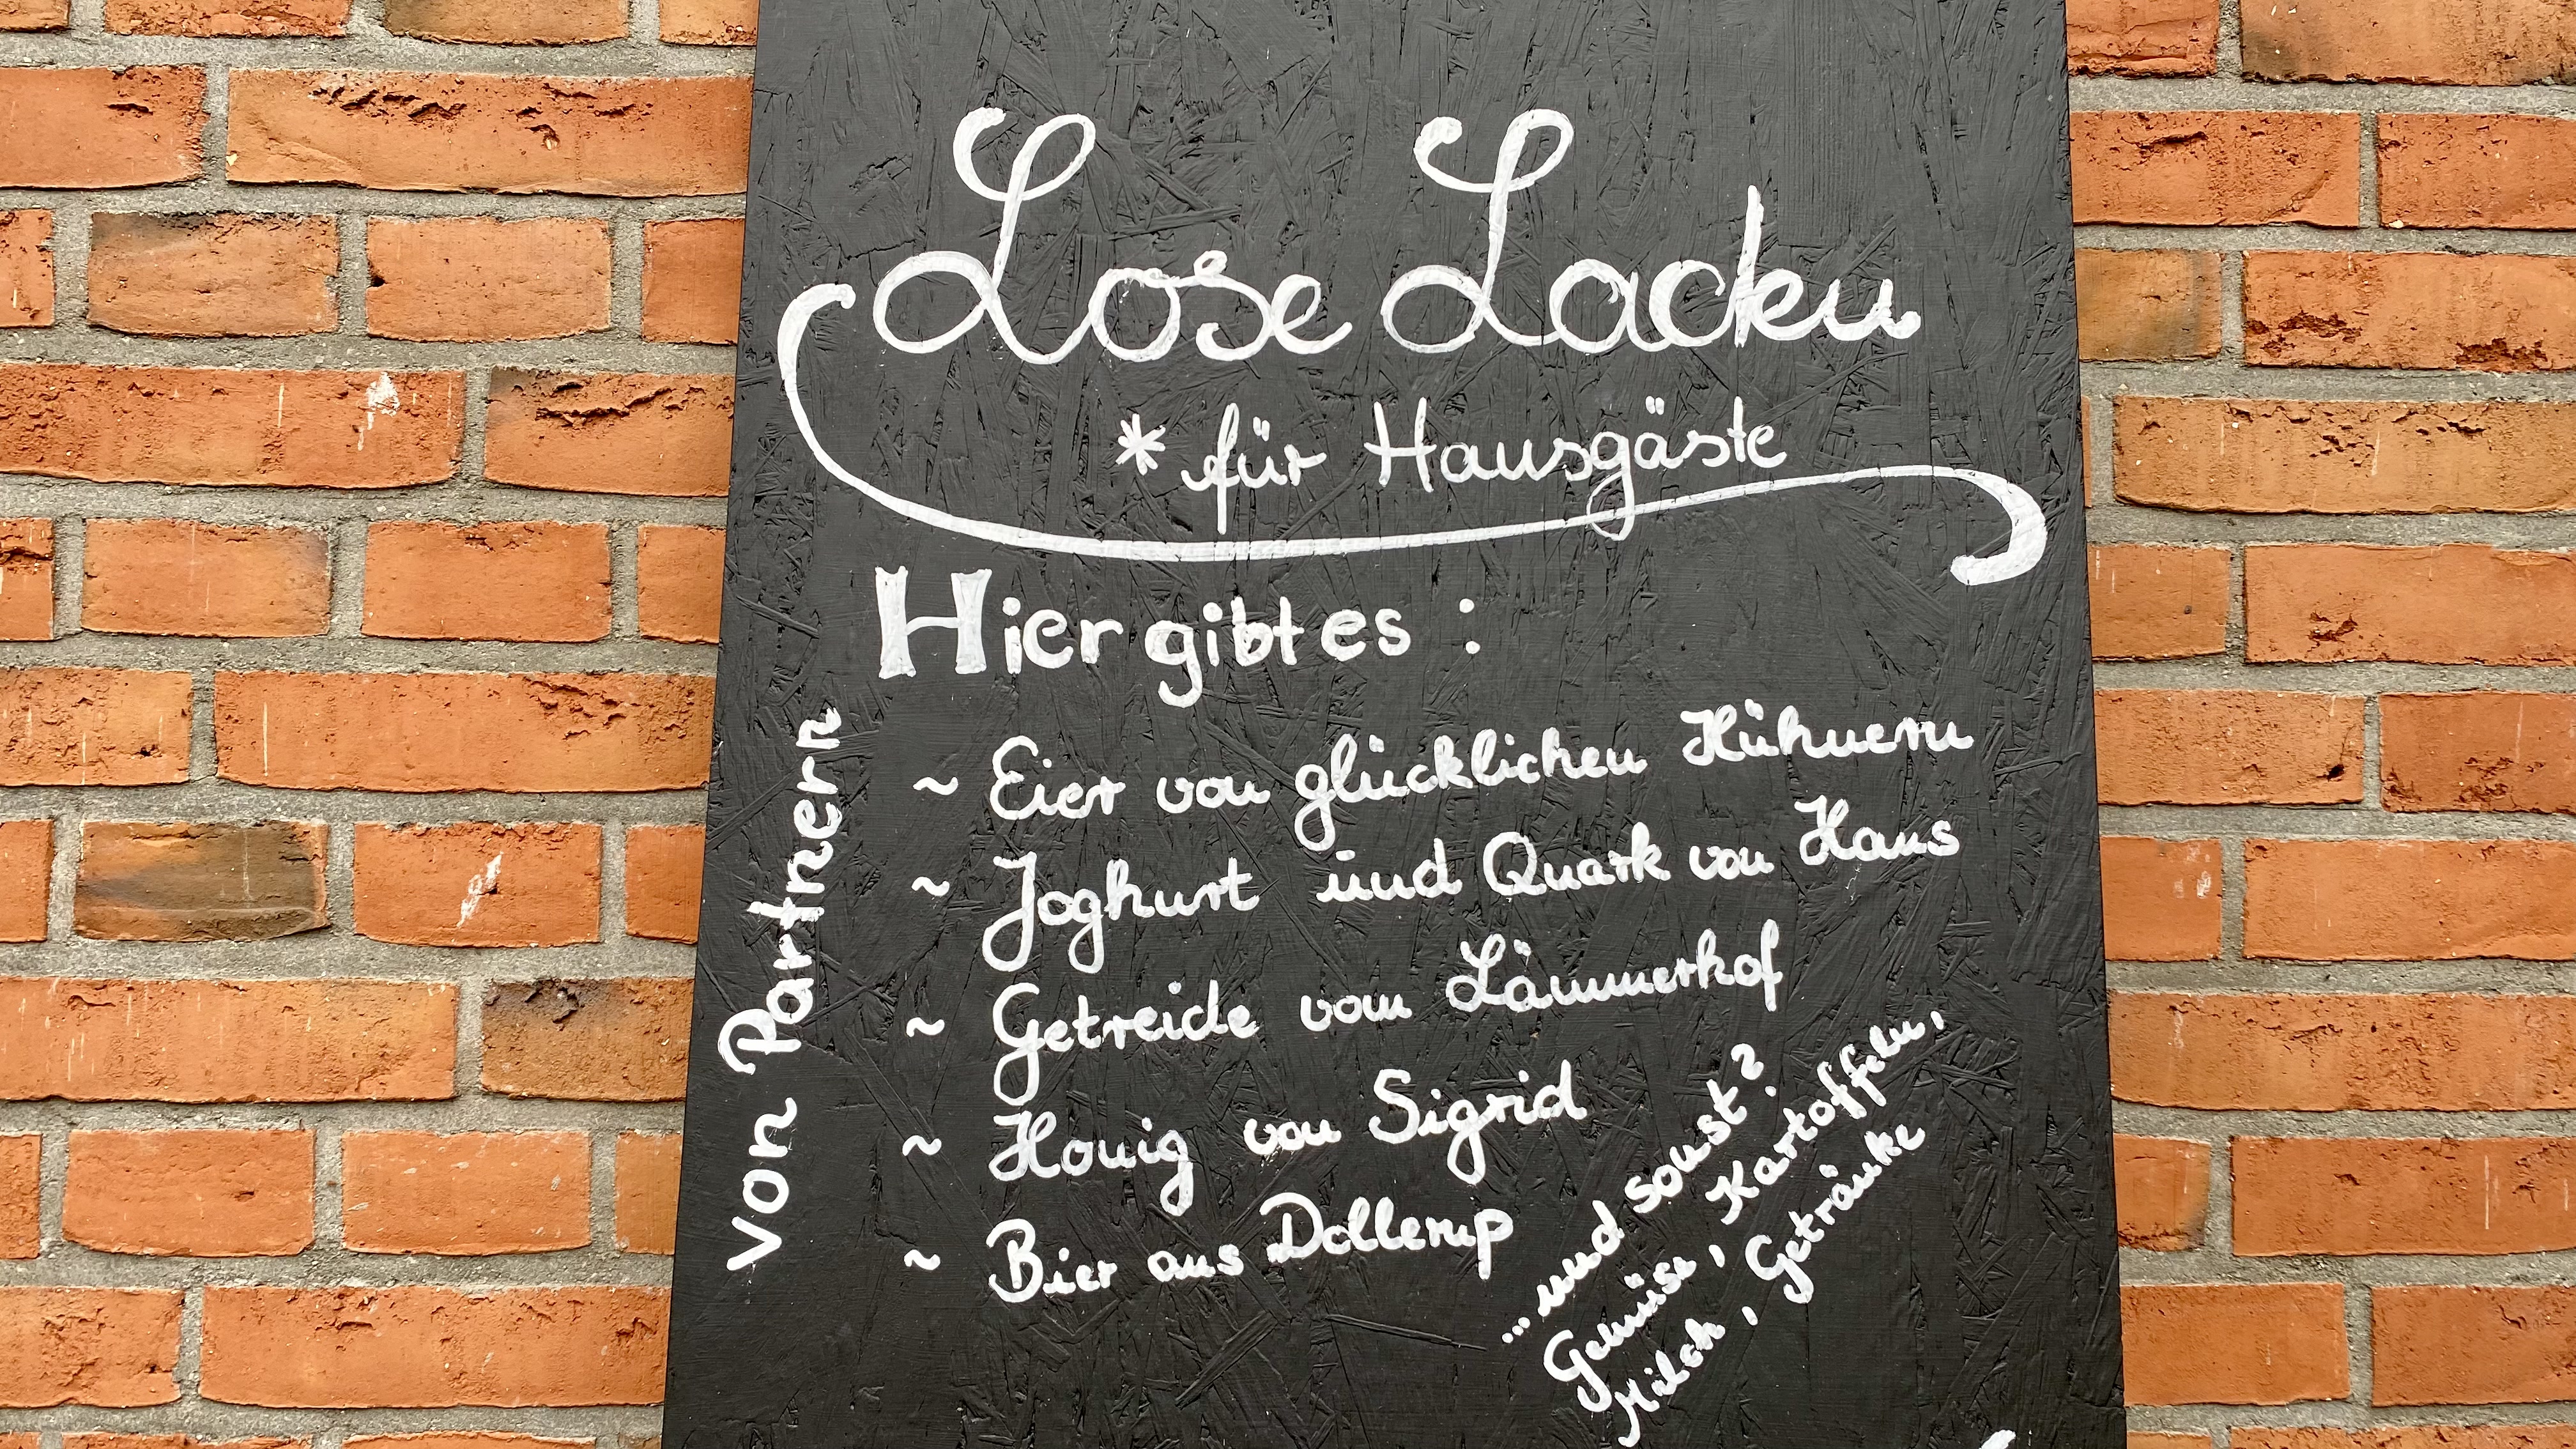 Lose Laden
* für Hausgäste
Hier gibt es :
von Partnern
~ Eier von glücklichen Hühnern
~ Joghurt und Quark von Haus
~ Getreide vom Lämmerhof
~ Honig von Sigrid
~ Bier aus Dollerup
...und sonst?
Gemüse, Kartoffeln,
Milch, Getränke